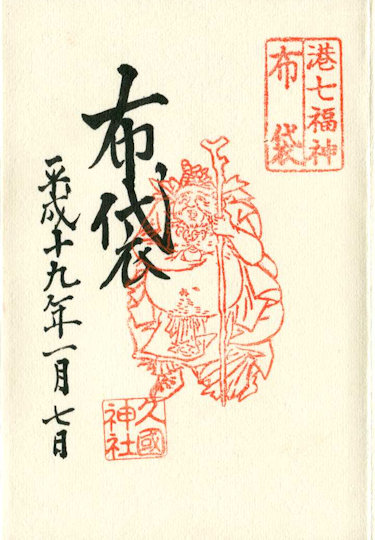 港七福神
布袋
布袋
平成十九年一月七日
久國
神社